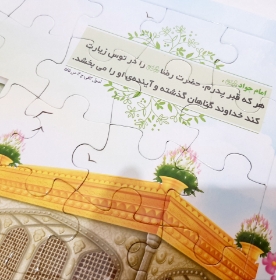 امام جواد
هر که قبر پدرم، حضرت رضا را در توس زیارت
کند خداوند گناهان گذشته و آینده‌ی او را می بخشد.